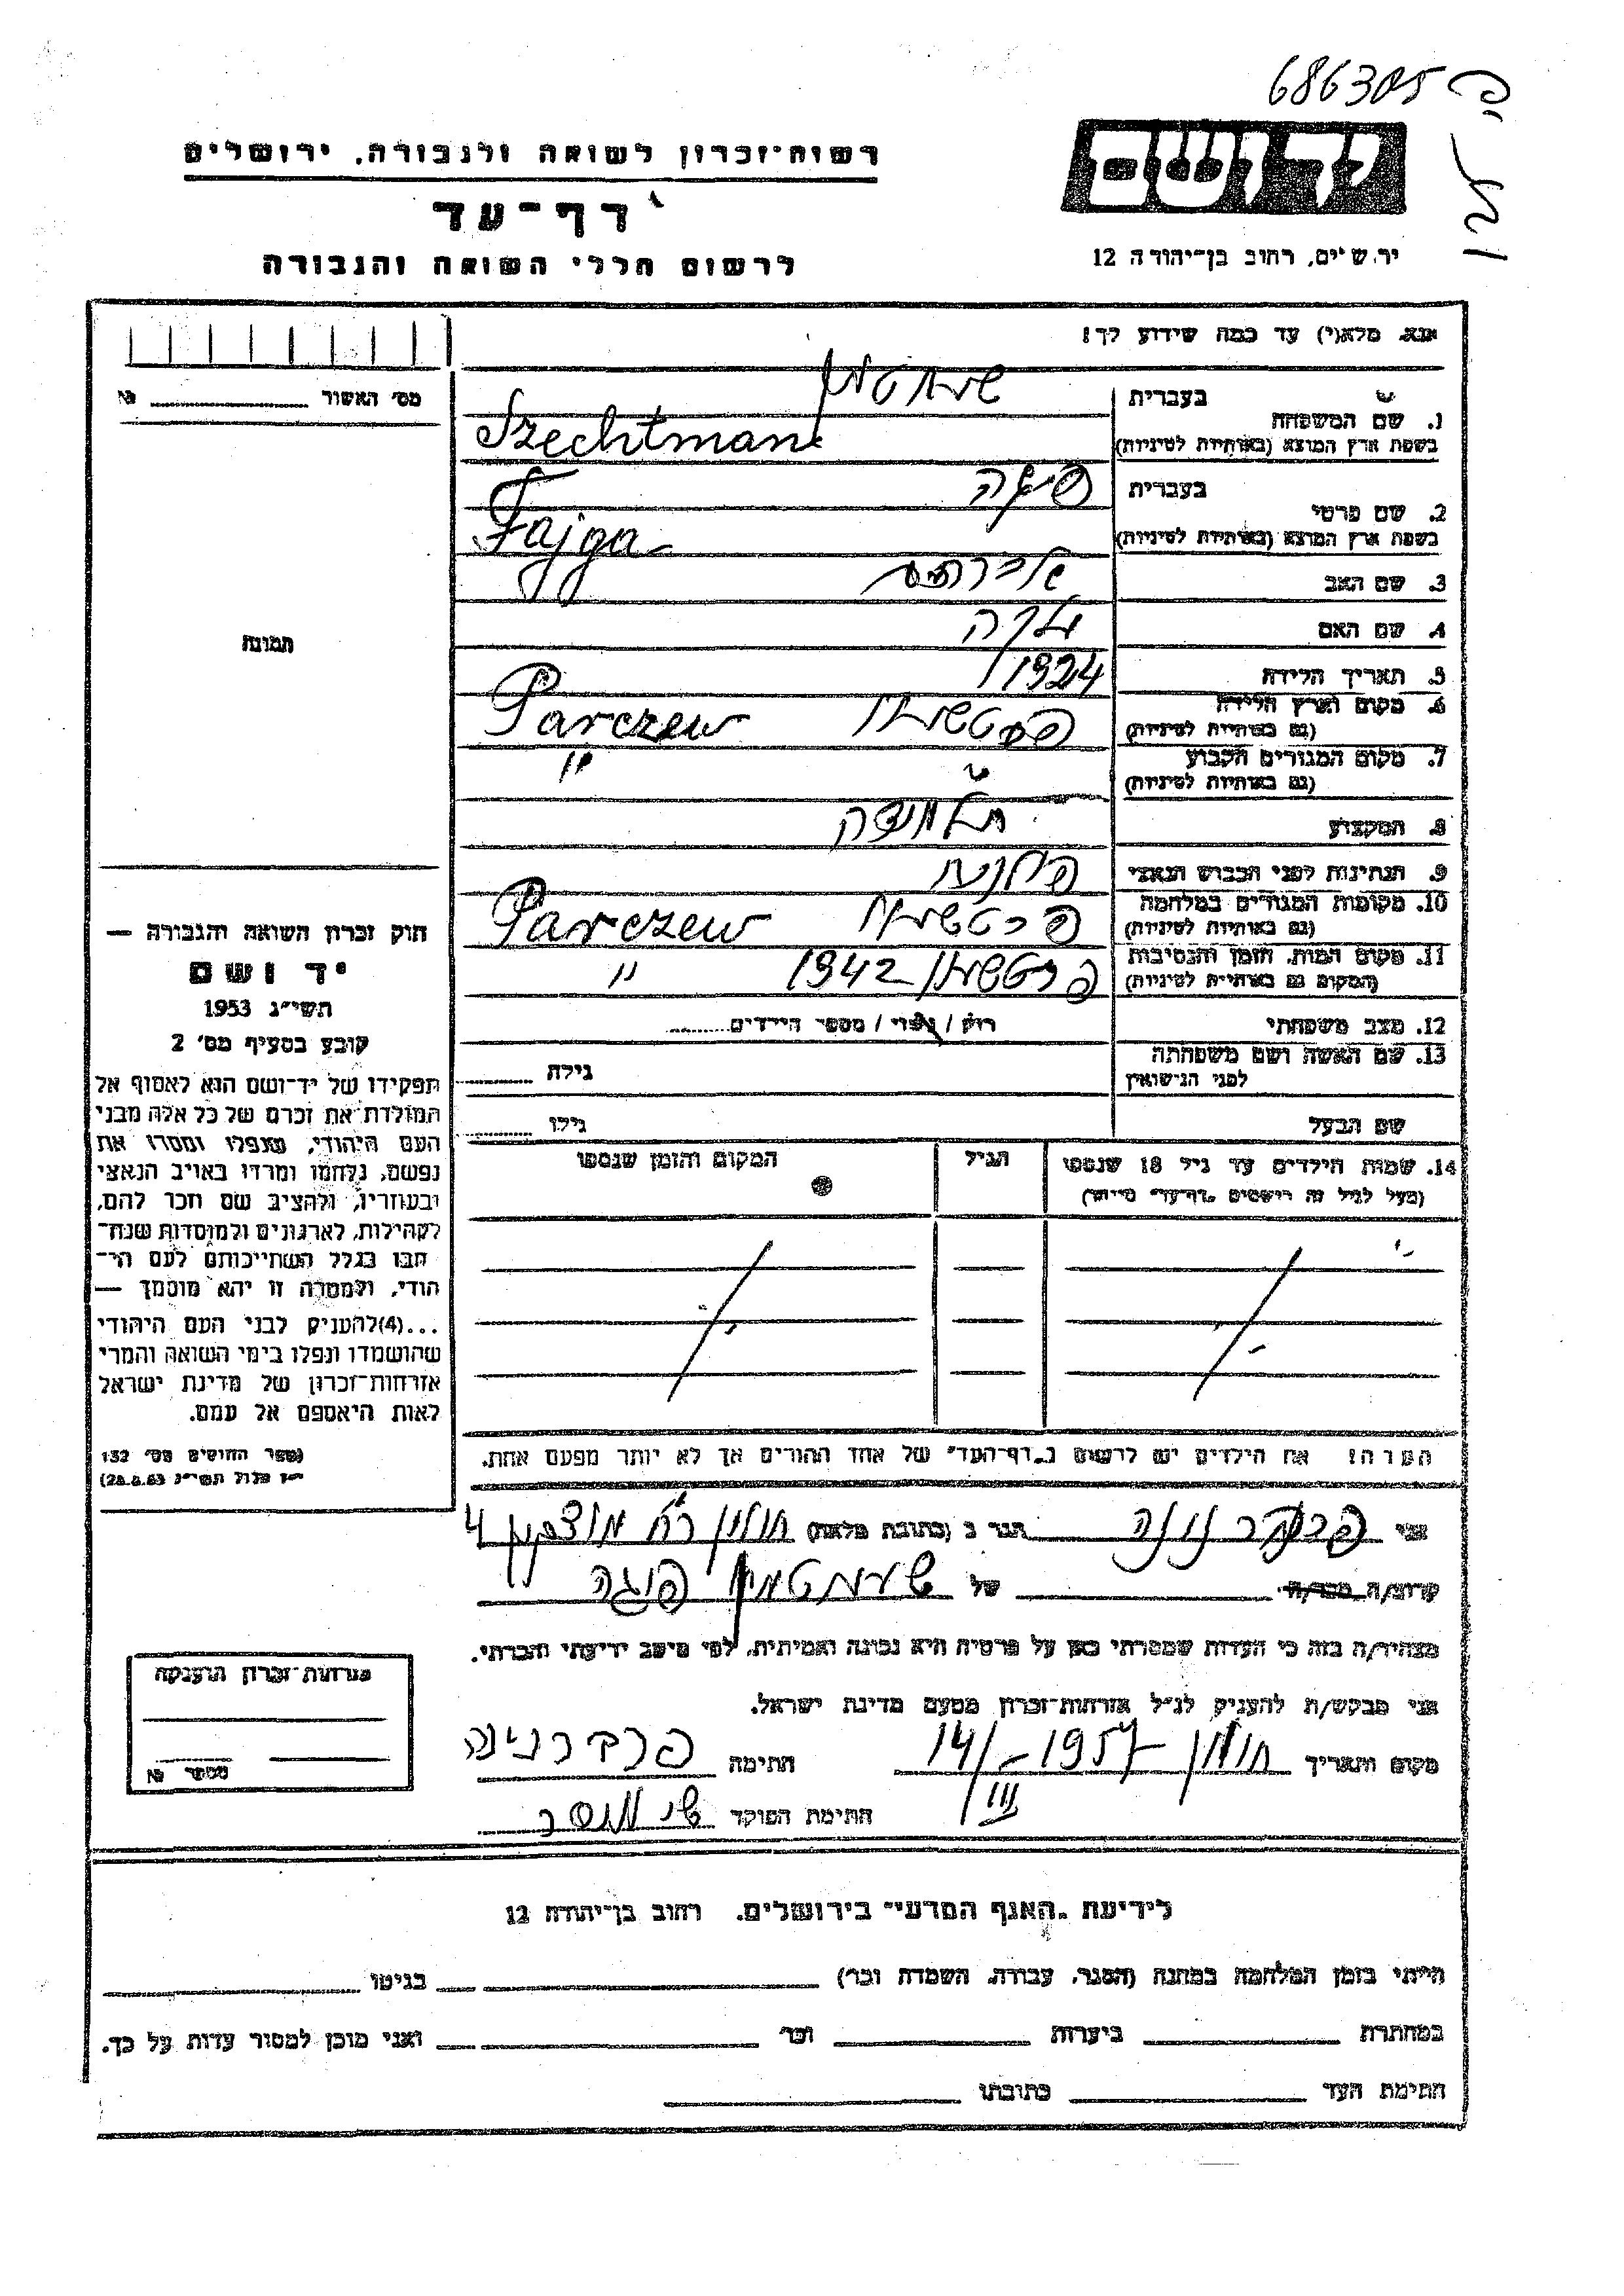 686305
רשות־זכרון לשואה ולגבורה, ירושלים
דף־עד
לרשום חללי השואה והגבורה
יד ושם
רחוב בן־יהודה 12
אנא, מלא(י) עד כמה שידוע לך!
מס׳ האשור № 
בעברית
1. שם המשפחה
בשפת ארץ המוצא (באותיות לטיניות) Szechtman
בעברית
2. שם פרטי
בשפת ארץ המוצא (באותיות לטיניות) Fajga
3. שם האב
4. שם האם
5. תאריך הלידה 1924
6. מקום וארץ הלידה Parczew
(גם באותיות לטיניות)
7. מקום המגורים הקבוע "
(גם באותיות לטיניות)
8. המקצוע
9. הנתינות לפני הכבוש הנאצי
10. מקומות המגורים במלחמה Parczew
(גם באותיות לטיניות)
11. מקום המות, הזמן והנסיבות 1942 "
(המקום גם באותיות לטיניות)
12. מצב משפחתי רווק / נשוי / מספר הילדים
13. שם האשה ושם משפחתה גילה
לפני הנישואין
שם הבעל גילו
14. שמות הילדים עד גיל 18 שנספו הגיל המקום והזמן שנספו
(מעל לגיל זה רושמים "דף־עד" מיוחד)
תמונה
חוק זכרון השואה והגבורה —
יד ושם
תשי״ג 1953
קובע בסעיף מס׳ 2
תפקידו של יד־ושם הוא לאסוף אל
המולדת את זכרם של כל אלה מבני
העם היהודי, שנפלו ומסרו את
נפשם, נלחמו ומרדו באויב הנאצי
ובעוזריו, ולהציב שם וזכר להם,
לקהילות, לארגונים ולמוסדות שנח־
רבו בגלל השתייכותם לעם הי־
הודי, ולמטרה זו יהא מוסמך —
...(4)להעניק לבני העם היהודי
שהושמדו ונפלו בימי השואה והמרי
אזרחות־זכרון של מדינת ישראל
לאות היאספם אל עמם.
(ספר החוקים מס׳ 132
הערה! את הילדים יש לרשום ב"דף־העד" של אחד ההורים אך לא יותר מפעם אחת.
אני הגר ב (כתובת מלאה) חולון 4
קרוב/ה מכר/ה של שעכטמן פייגה
מצהיר/ה בזה כי העדות שמסרתי כאן על פרטיה היא נכונה ואמיתית, לפי מיטב ידיעתי והכרתי.
אני מבקש/ת להעניק לנ״ל אזרחות־זכרון מטעם מדינת ישראל.
מקום ותאריך חולון 14/III - 1957 חתימה
חתימת הפוקד
אזרחות־זכרון הוענקה
מספר №
לידיעת "האגף המדעי" בירושלים, רחוב בן־יהודה 12
הייתי בזמן המלחמה במחנה (הסגר, עבודה, השמדה וכו׳) בגיטו
במחתרת ביערות וכו׳ ואני מוכן למסור עדות על כך.
חתימת העד כתובתו